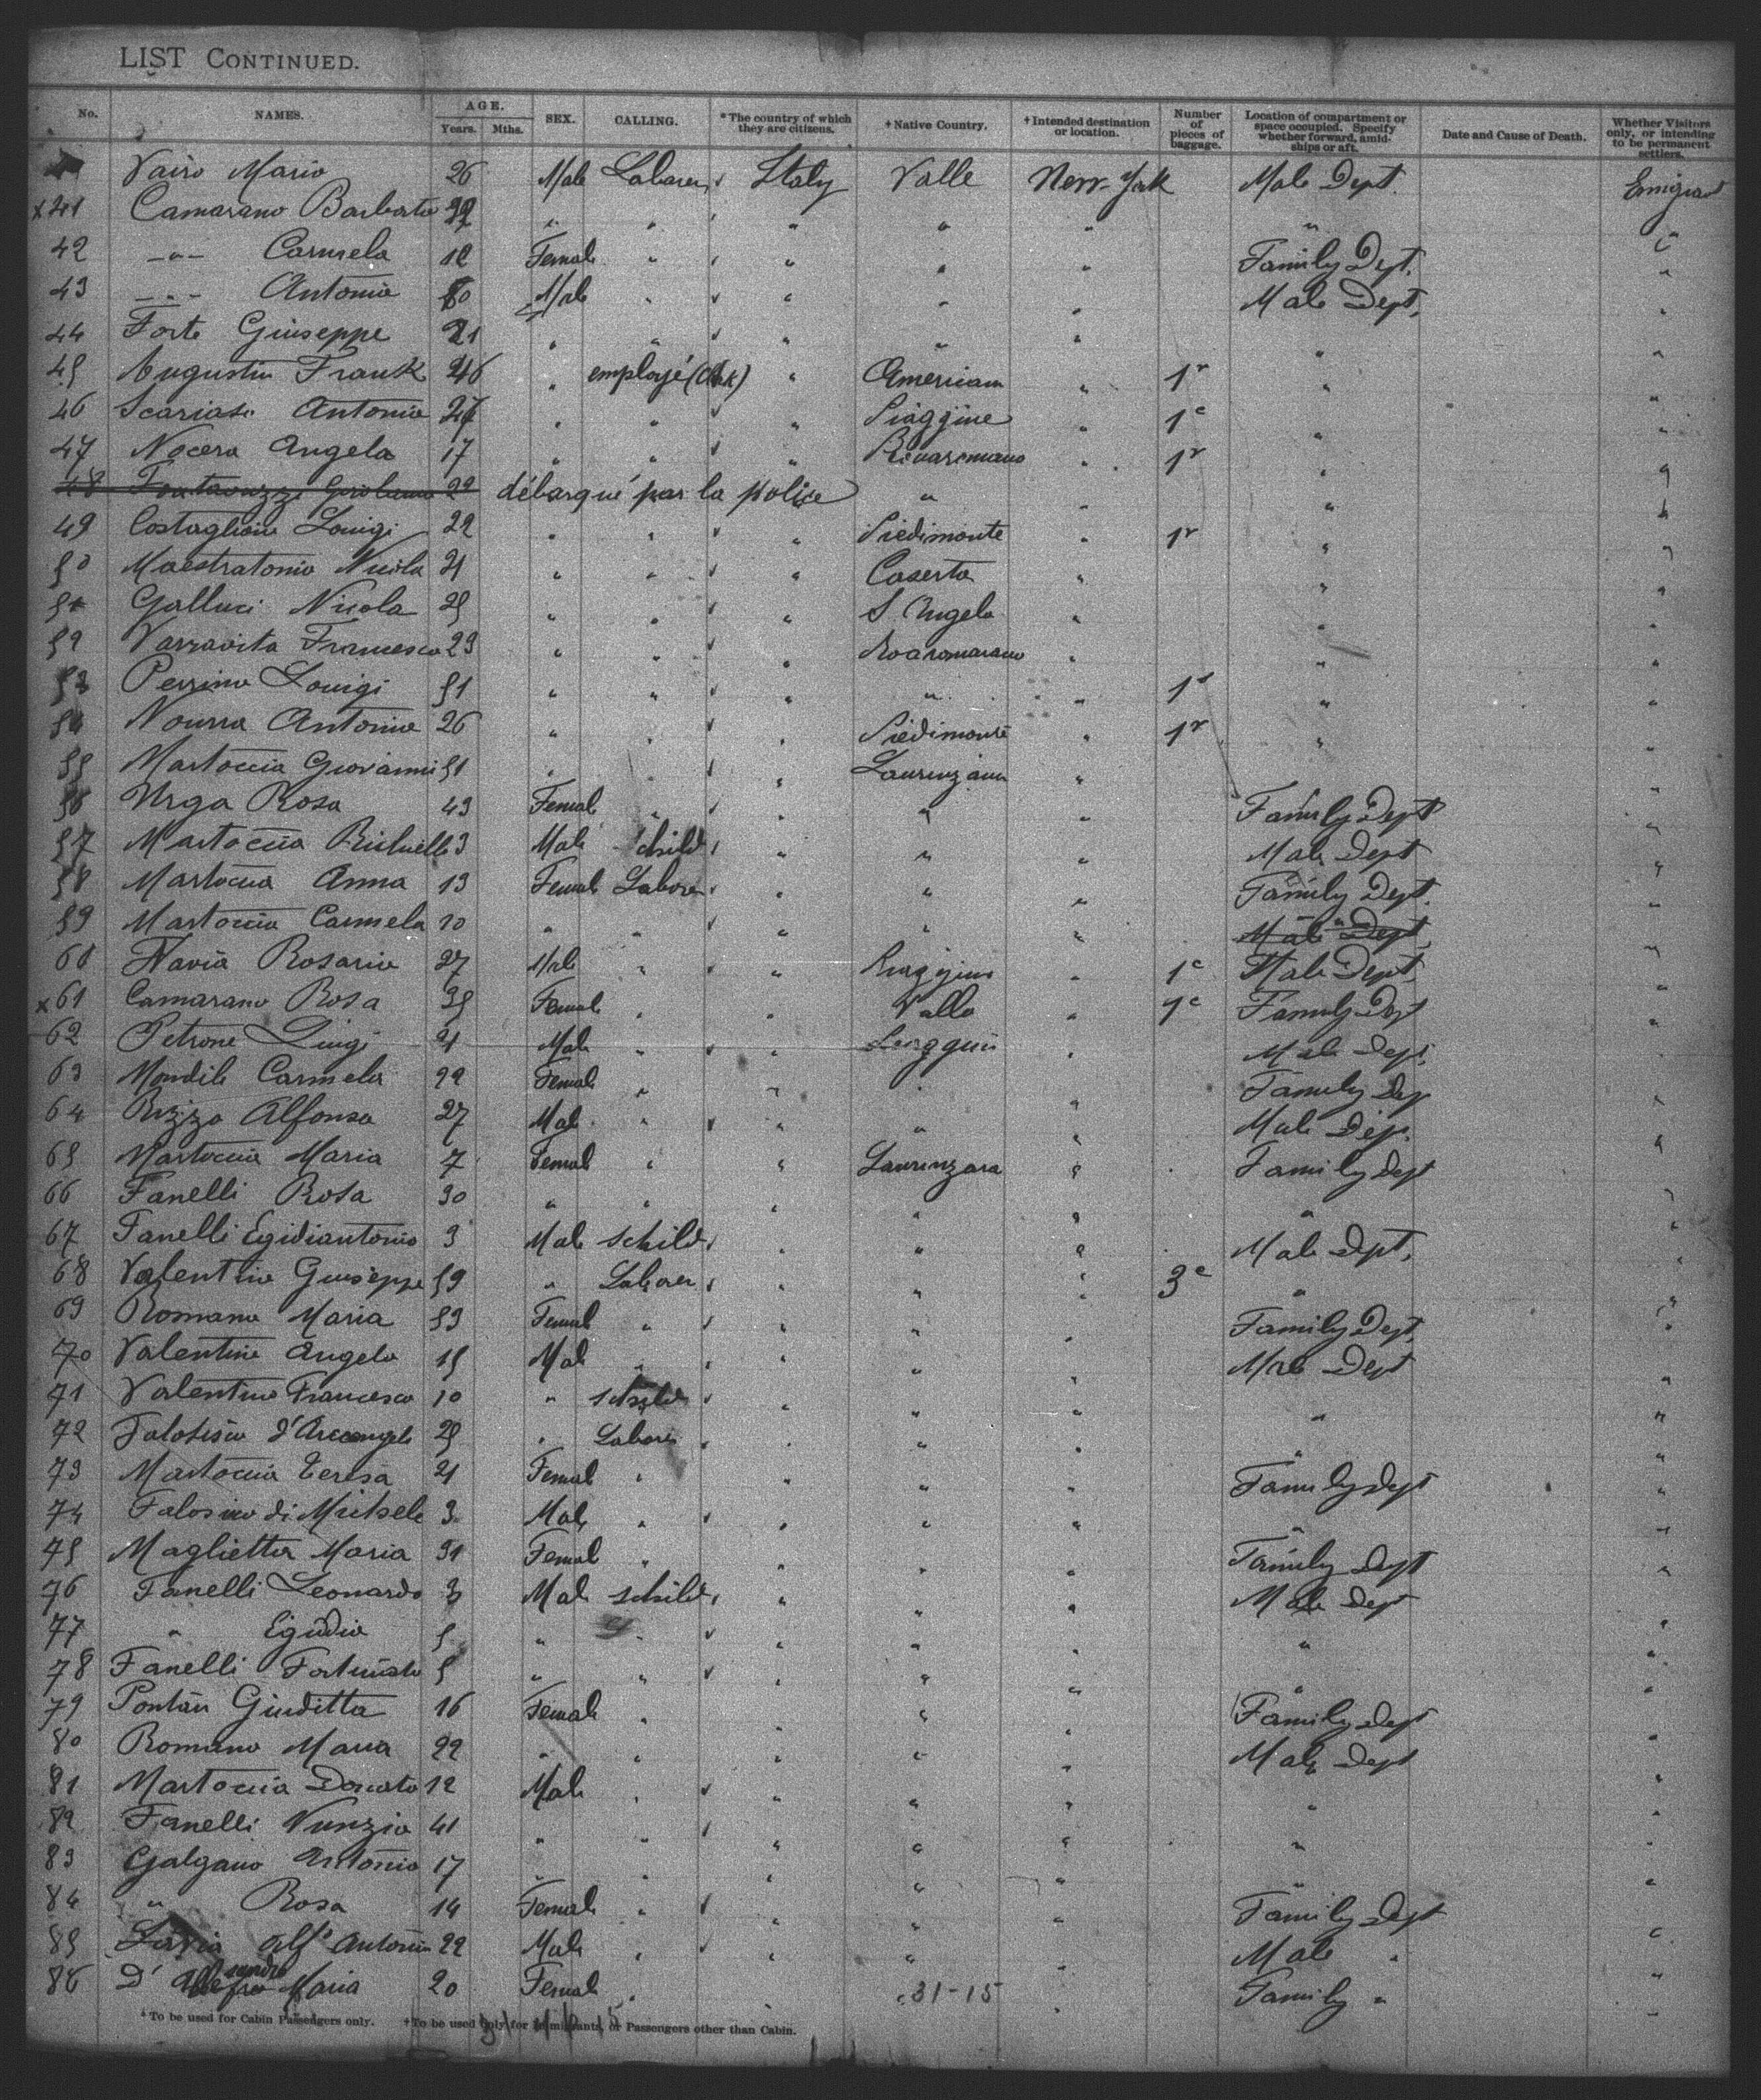 LIST CONTINUED.
No. NAMES. AGE. Years. Mths. SEX. CALLING. *The country of which they are citizens. †Native Country. †Intended destination or location. Number of pieces of baggage. Location of compartment or space occupied. Specify whether forward, amidships or aft. Date and Cause of Death. Whether Visitors only, or intending to be permanent settlers.
Vairo Mario 26 Male Laborer Italy Valle New-York Male Dept. Emigrant
x 41 Camarano Barbato " " " " " " "
42 -"- Carmela Female " " " " Family Dept. "
43 -"- Antonio Male " " " " Male Dept. "
44 Forte Giuseppe 21 " " " " " " "
45 Augustin Frank 26 " employé (Clerk) " American " 1 " "
46 Antonio " " " Piaggine " 1c " "
47 Nocera Angelo 17 " " " " 1 " "
48 22 débarqué par la police " " " "
49 Luigi 22 " " " Piedimonte " 1 " "
50 Maestratonio Nicola 21 " " " Caserta " " "
51 Galluci Nicola 25 " " " S. Angelo " " "
52 Varravita Francesco 23 " " " " " "
53 Perrino Louigi 51 " " " " " 1 " "
54 Antonio 26 " " " Piedimonte " 1 " "
55 Martoccia Giovanni 51 " " " Laurenzana " "
56 Urga Rosa 43 Female " " " " Family Dept "
57 Martoccia 3 Male schild " " " Male Dept "
58 Martoccia Anna 13 Female Laborer " " " Family Dept. "
59 Martoccia Carmela 10 " " " " " Male Dept "
60 Flavia Rosario 27 Male " " " 1c Male Dept. "
x 61 Camarano Rosa 35 Female " " Vallo " 1c Family Dept "
62 Petrone Luigi 21 Male " " " Male Dept. "
63 Carmela 22 Female " " " " Family Dep "
64 Rizzo Alfonso 27 Male " " " " Male Dep. "
65 Martoccia Maria 7 Female " " Laurenzana " Family Dept "
66 Fanelli Rosa 30 " " " " " " "
67 Fanelli Egidiantonio 3 Male schild " " " Male Dpt. "
68 Valentino Giuseppe 59 " Laborer " " " 3c " "
69 Romano Maria 53 Female " " " " Family Dept. "
70 Valentino Angelo 15 Male " " " " Male Dept "
71 Valentino Francesco 10 " schild " " " " "
72 d'Arcangelo 25 " Laborer " " " " "
73 Martoccia Teresa 21 Female " " " " Family dept "
74 di Michele 3 Male " " " " " "
75 Maglietta Maria 31 Female " " " " Family Dept "
76 Fanelli Leonardo 3 Male schild " " " Male Dept "
77 " Egidio 5 " " " " " "
78 Fanelli Fortunato 5 " " " " " " "
79 Giuditta 16 Female " " " Family Dept "
80 Romano Maria 22 " " " " " Male Dept "
81 Martoccia Donato 12 Male " " " " " "
82 Fanelli Nunzio 41 " " " " " " "
83 Galgano Antonio 17 " " " " " " "
84 " Rosa 14 Female " " " " Family Dept "
85 Antonio 22 Male " " " " Male " "
86 D' Maria 20 Female " " 31-15 " Family " "
*To be used for Cabin Passengers only. †To be used only for Immigrants, or Passengers other than Cabin.